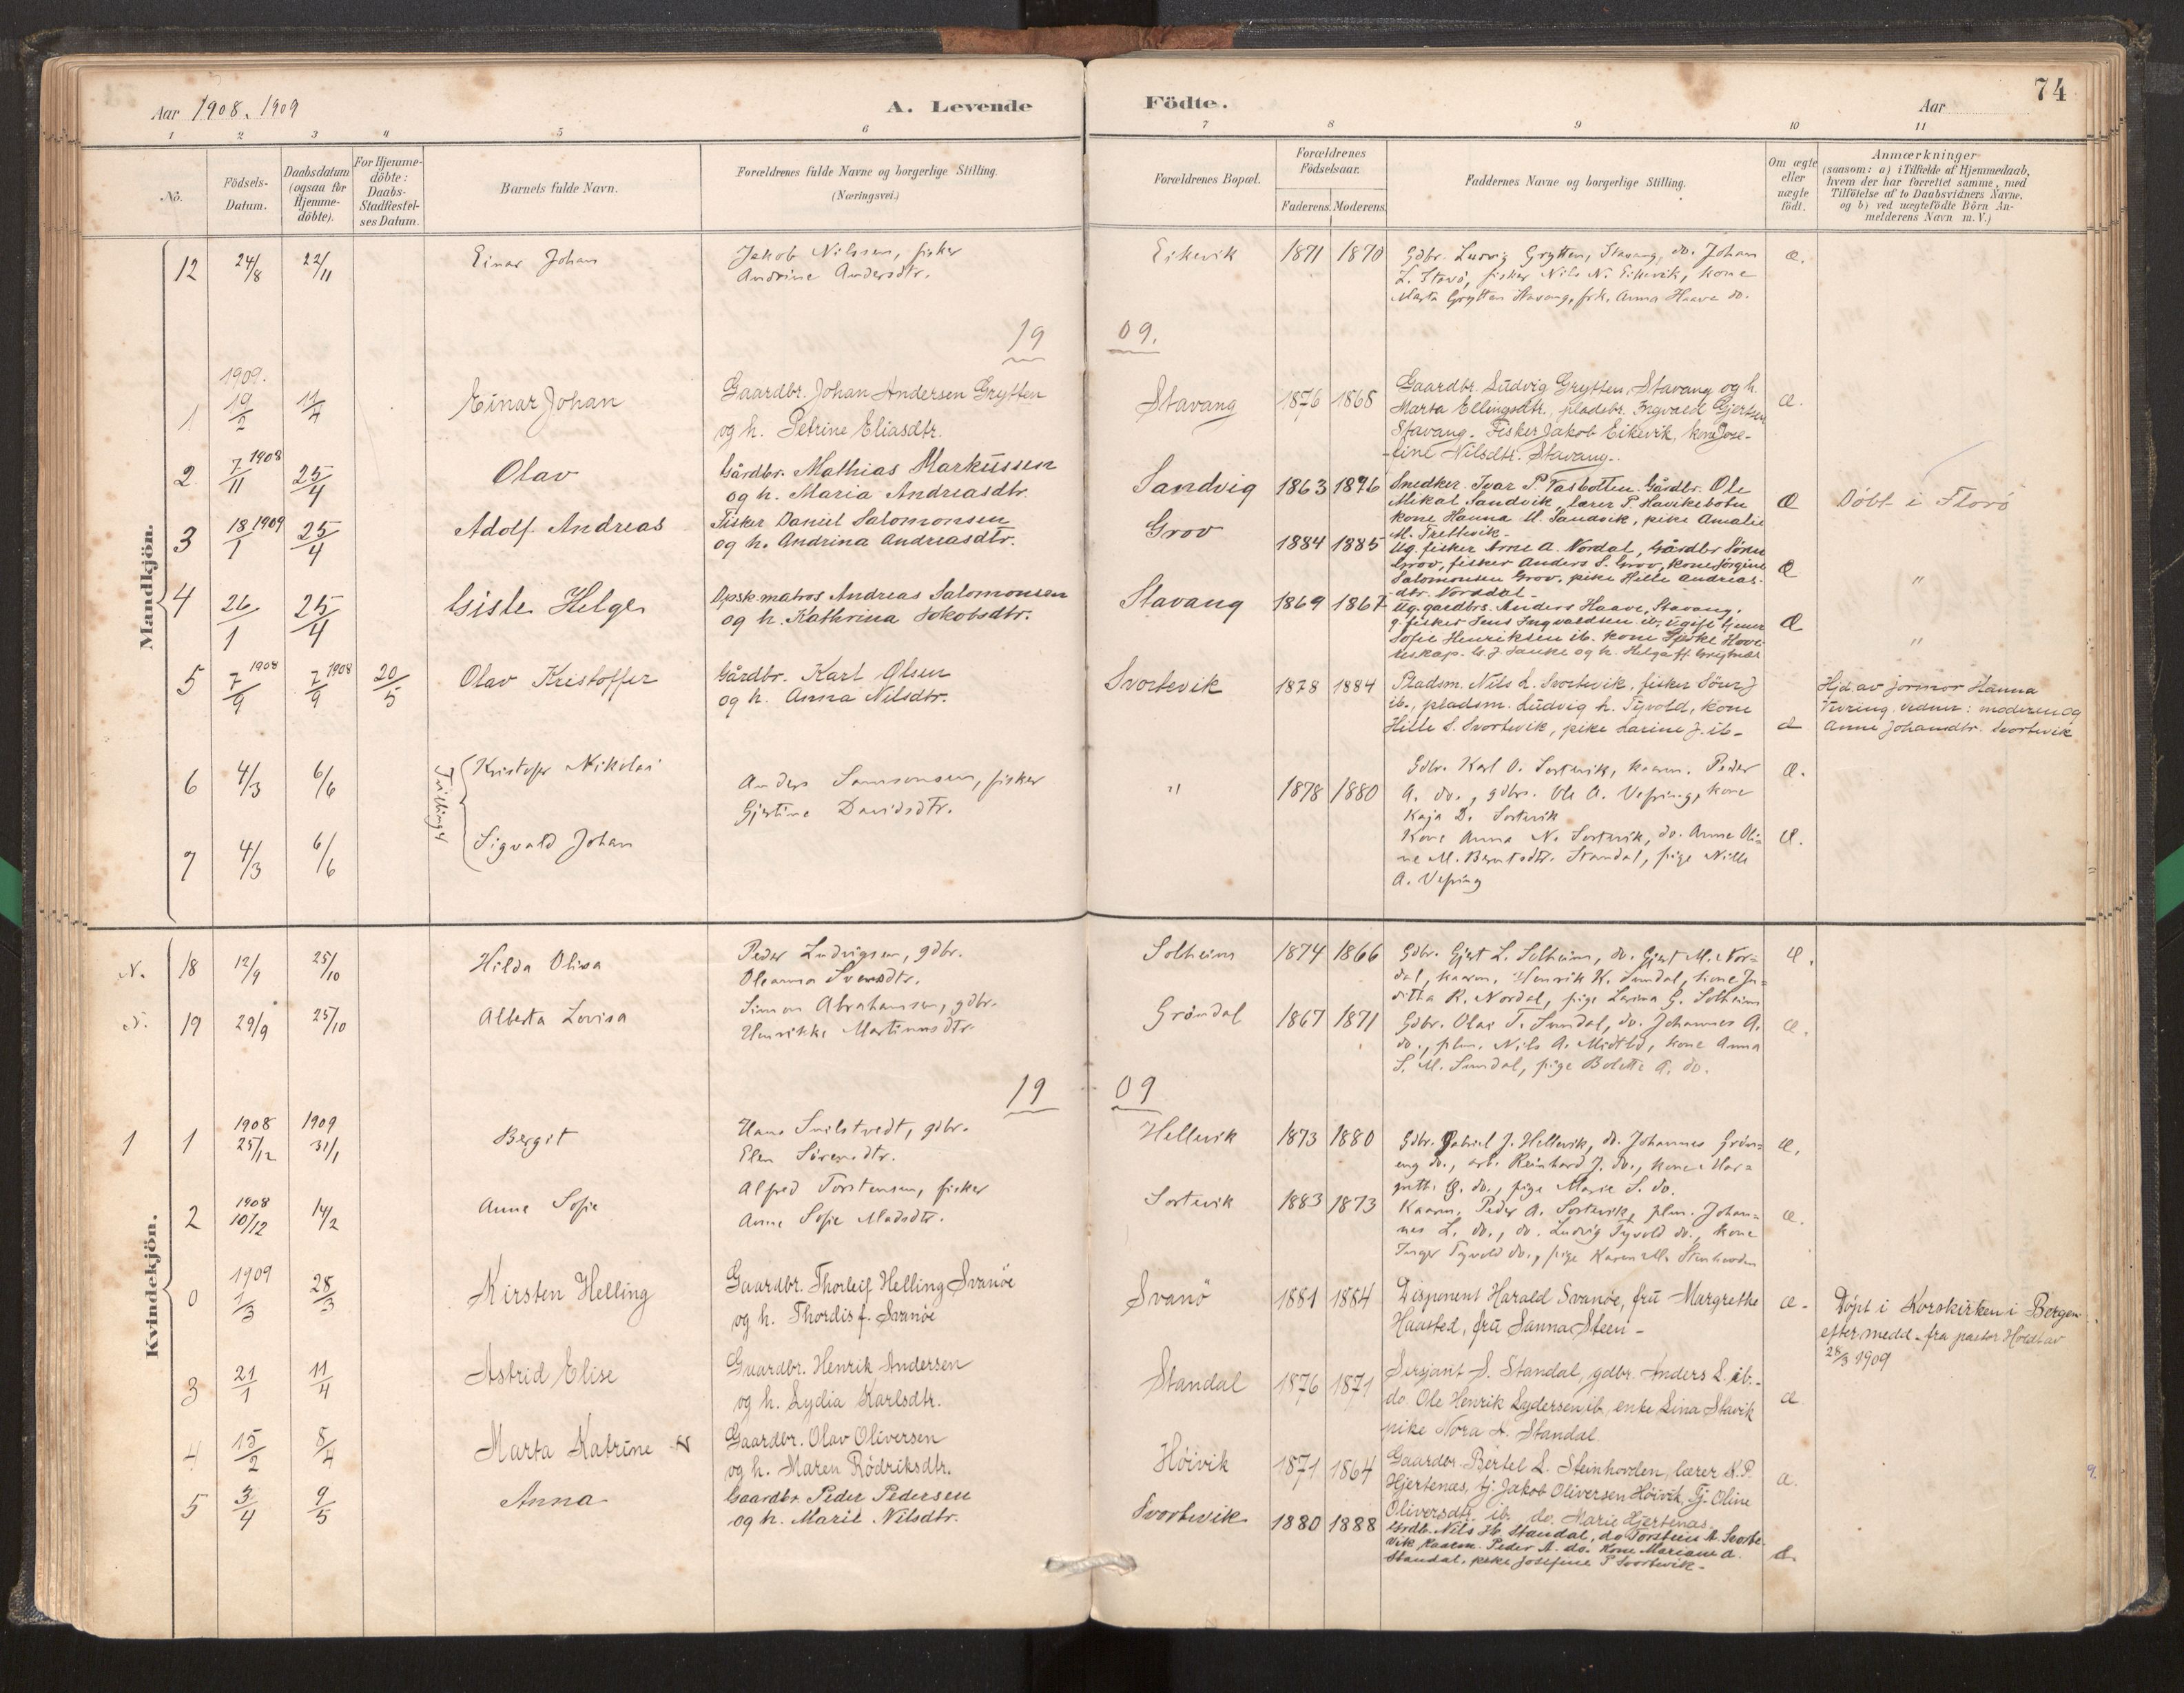 74
Aar 1908. 1909
A. Levende
Födte.
Aar
1 2 3 4 5 6 7 8 9 10 11
No.
Födsels-
Datum.
Daabsdatum
(ogsaa for
Hjemme-
döbte).
For Hjemme-
döbte:
Daabs-
Stadfestel-
ses Datum.
Barnets fulde Navn.
Forældrenes fulde Navne og borgerlige Stilling.
(Næringsvei.)
Forældrenes Bopæl.
Forældrenes
Födselsaar.
Faderens. Moderens.
Faddernes Navne og borgerlige Stilling.
Om ægte
eller
uægte
födt.
Anmærkninger
(saasom: a) i Tilfælde af Hjemmedaab,
hvem der har forrettet samme, med
Tilföielse af to Daabsvidners Navne.
og b) ved uægtefödte Börn An-
melderens Navn m.V.)
Mandkjön.
12 24/8 22/11 Einar Johan
Jakob Nilssen, fisker
Andrine Andersdtr.
Eikevik 1871 1870
Gdbr. Ludvig Grytten, Stavang, do. Johan
L. Stavö, fisker Nils N. Eikevik, kone
Marta Grytten Stavang, frk. Anna Haave do.
æ.
19 09.
1909.
1 19/2 11/4 Einar Johan
Gaardbr. Johan Andersen Grytten
og h. Petrine Eliasdtr.
Stavang 1876 1868
Gaardbr. Ludvig Grytten, Stavang og h.
Marta Ellingsdtr., pladsbr. Ingvald Gjertsen
Stavang. Fisker Jakob Eikevik, kone Jose-
line Nilsdtr. Stavang.
æ.
2 7/11 1908 25/4 Olav
Gårdbr. Mathias Markussen
og h. Maria Andreasdtr.
Sandvig 1863 1876
Snedker Ivar P. Tasbotten. Gårdbr. Ole
Mikal Sandvik, lærer P. Havikebotn
kone Hanna M. Sandvik, pike Amalie
M. Trettevik.
æ
Döbt i Florö
3 18/1 1909 25/4 Adolf Andreas
Fisker Daniel Salomonsen
og h. Andrina Andreasdtr.
Grov 1884 1885
Ug. fisker Arne A. Nordal, Gårdbr Sören
Grov, fisker Anders S. Grov, kone Jörgine
Salomonsen Grov, pike Hille Andreas-
dtr. Norddal.
æ
"
4 26/1 25/4 Gisle Helge
Opsk.matros Andreas Salomonsen
og h. Kathrina Jakobsdtr.
Stavang 1869 1867
Ug. gaardbrs. Anders Haave, Stavang.
g. fisker Jens Ingvaldsen ib. ugift tjener
Sofie Henriksen ib. kone
æ
"
5 7/9 1908 7/9 1908 20/5 Olav Kristoffer
Gårdbr. Karl Olsen
og h. Anna Nilsdtr.
Svortevik 1878 1884
Pladsm. Nils L. Svortevik, fisker Sören J
ib., pladsm. Ludvig h. Tyvold, kone
Hille S. Svortevik, pike Larine J. ib.
æ
Hjd. av jormor Hanna
Vefring. Vidner: moderen og
Anne Johansdtr. Svortevik
Tvillinger
6 4/3 6/6 Kristofer Nikolai
Anders Samsonsen, fisker
Gjertine Davidsdtr.
" 1878 1880
Gdbr. Karl O. Sortevik, kaarm. Peder
A. do., gdbr. Ole A. Vefring, kone
Kaja D. Sortevik
æ.
7 4/3 6/6 Sigvald Johan
Kone Anna N. Sortevik, do. Anne Oli=
ne M. Berntsdtr. Standal, pige Nille
A. Vefring
æ.
Kvindekjön.
N. 18 12/9 25/10 Hilda Oliva
Peder Ludvigsen, gdbr.
Oleanna Svensdtr.
Solheim 1874 1866
Gdbr. Gjert L. Solheim, do. Gjert M. Nor=
dal, kaarm. Henrik K. Sundal, kone Ju=
ditha R. Nordal, pige Larina G. Solheim
æ.
N. 19 29/9 25/10 Alberta Lovisa
Simon Abrahamsen, gdbr.
Henrikke Martinusdtr.
Gröndal 1867 1871
Gdbr. Olai T. Sundal, do. Johannes A.
do., plm. Nils A. Midtbö, kone Anna
S. M. Sundal, pige Bolette A. do.
æ.
19 09
1 1 1908 25/12 1909 31/1 Bergit
Hans Svilstvedt, gdbr.
Elen Sörensdtr.
Hellevik 1873 1880
Gdbr. Gabriel J. Hellevik, do. Johannes Grön=
eng do., arb. Reinhard J. do., kone Mar=
grethe G. do., pige Marie S. do.
æ.
2 1908 10/12 14/2 Anne Sofie
Alfred Torstensen, fisker
Anne Sofie Madsdtr.
Sortevik 1883 1873
Kaarm. Peder A. Sortevik, plm. Johan=
nes L. do., do. Ludvig Tyvold do., kone
Inger Tyvold do., pige Karen M. Steinhovden
æ.
0 1909 1/3 28/3 Kirsten Helling
Gaardbr. Thorleif Helling Svanöe
og h. Thordis f. Svanöe
Svanö 1881 1884
Disponent Harald Svanöe, fru Margrethe
Haasted, fru Sanna Steen
æ.
Döpt i Korskirken i Bergen
efter medd. fra pastor Hvoslav
28/3 1909
3 21/1 11/4 Astrid Elise
Gaardbr. Henrik Andersen
og h. Lydia Karlsdtr.
Standal 1876 1871
Sersjant S. Standal, gdbr. Anders L. ib.
do. Ole Henrik Lydersen ib., enke Lina Stavik
pike Nora A. Standal
æ
4 15/2 8/4 Marta Katrine
Gaardbr. Olav Oliversen
og h. Maren Rödriksdtr.
Höivik 1871 1864
Gaardbr. Bertel L. Steinhovden, lærer K. P.
Hjertenæs, tj. Jakob Oliversen Höivik, Tj. Oline
Oliversdtr. ib. do. Marie Hjertenæs.
æ.
5 3/4 9/5 Anna
Gaardbr. Peder Pedersen
og h. Marie Nilsdtr.
Svortevik 1880 1888
Grdb. Nils Ib. Standal, do Torstein A. Svorte-
vik kaarm. Peder A. do. kone Mariane A.
Standal, pike Josefine P Svortevik
æ.